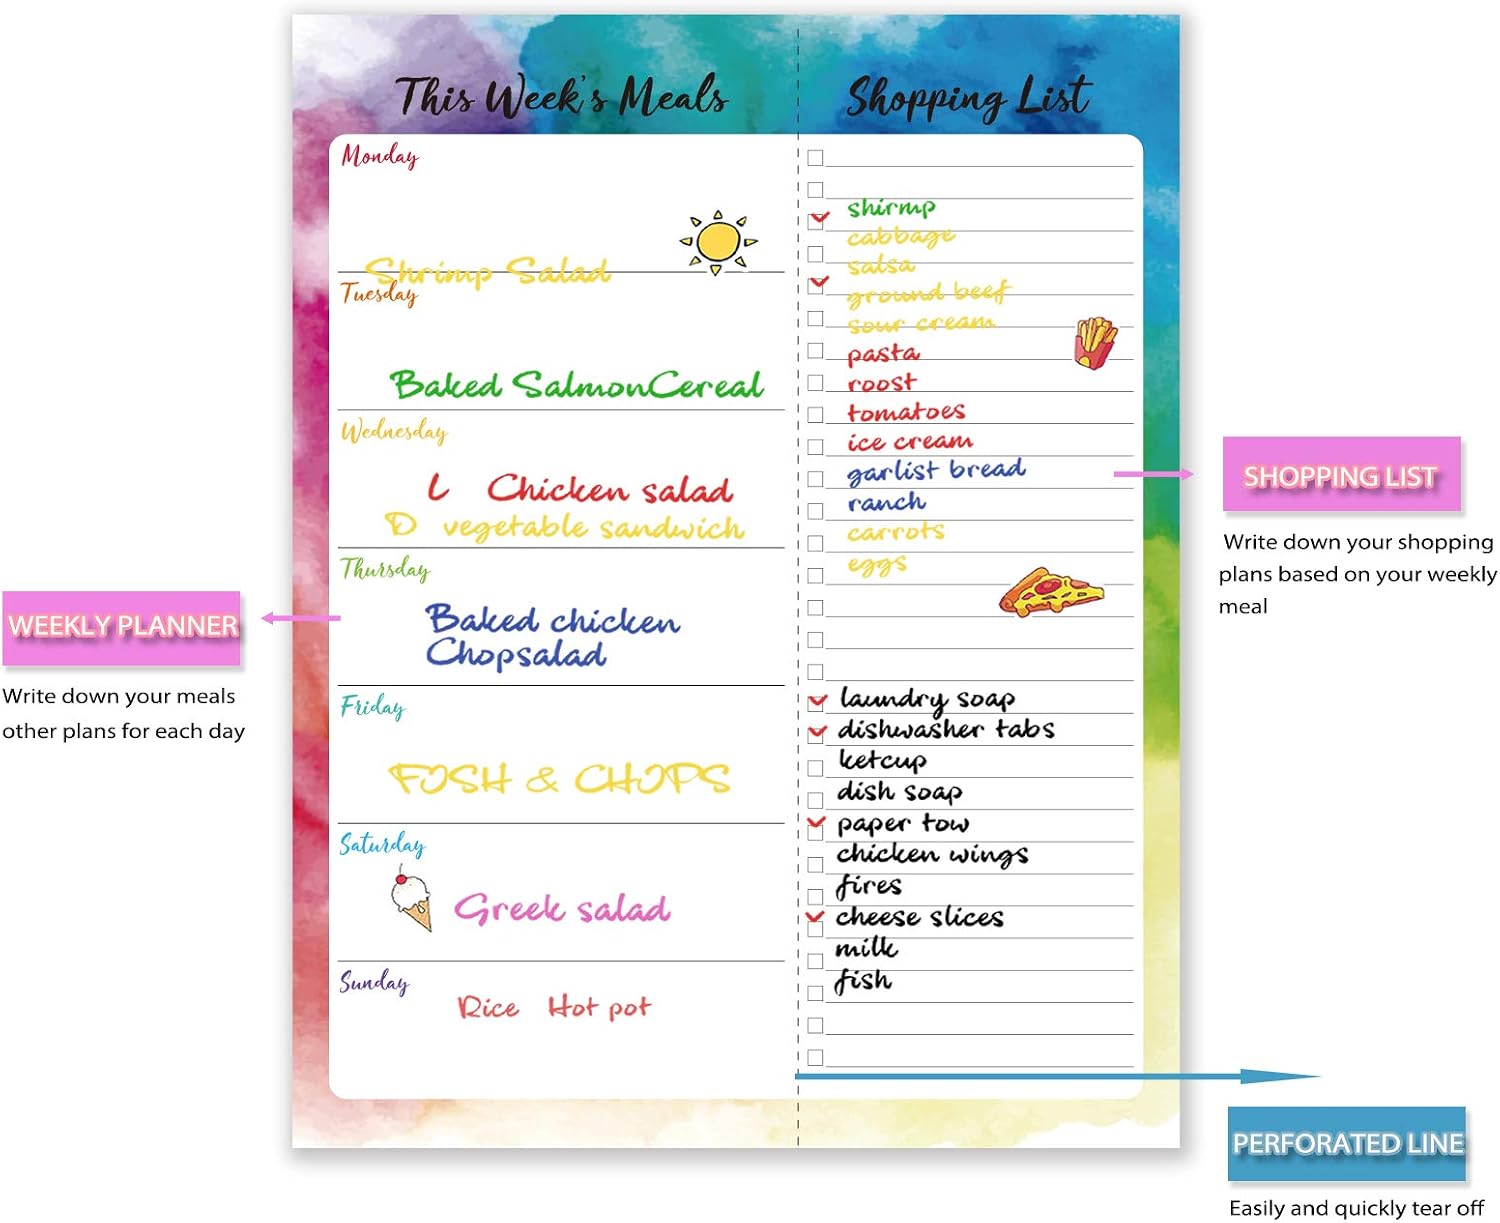 This Week's Meals
Shopping List
Monday
Shrimp Salad
Tuesday
Baked SalmonCereal
Wednesday
L Chicken salad
D vegetable sandwich
Thursday
Baked chicken
Chopsalad
Friday
FISH & CHIPS
Saturday
Greek salad
Sunday
Rice Hot pot
shirmp
cabbage
salsa
ground beef
sour cream
pasta
roost
tomatoes
ice cream
garlist bread
ranch
carrots
eggs
laundry soap
dishwasher tabs
ketcup
dish soap
paper tow
chicken wings
fires
cheese slices
milk
fish
WEEKLY PLANNER
Write down your meals
other plans for each day
SHOPPING LIST
Write down your shopping
plans based on your weekly
meal
PERFORATED LINE
Easily and quickly tear off